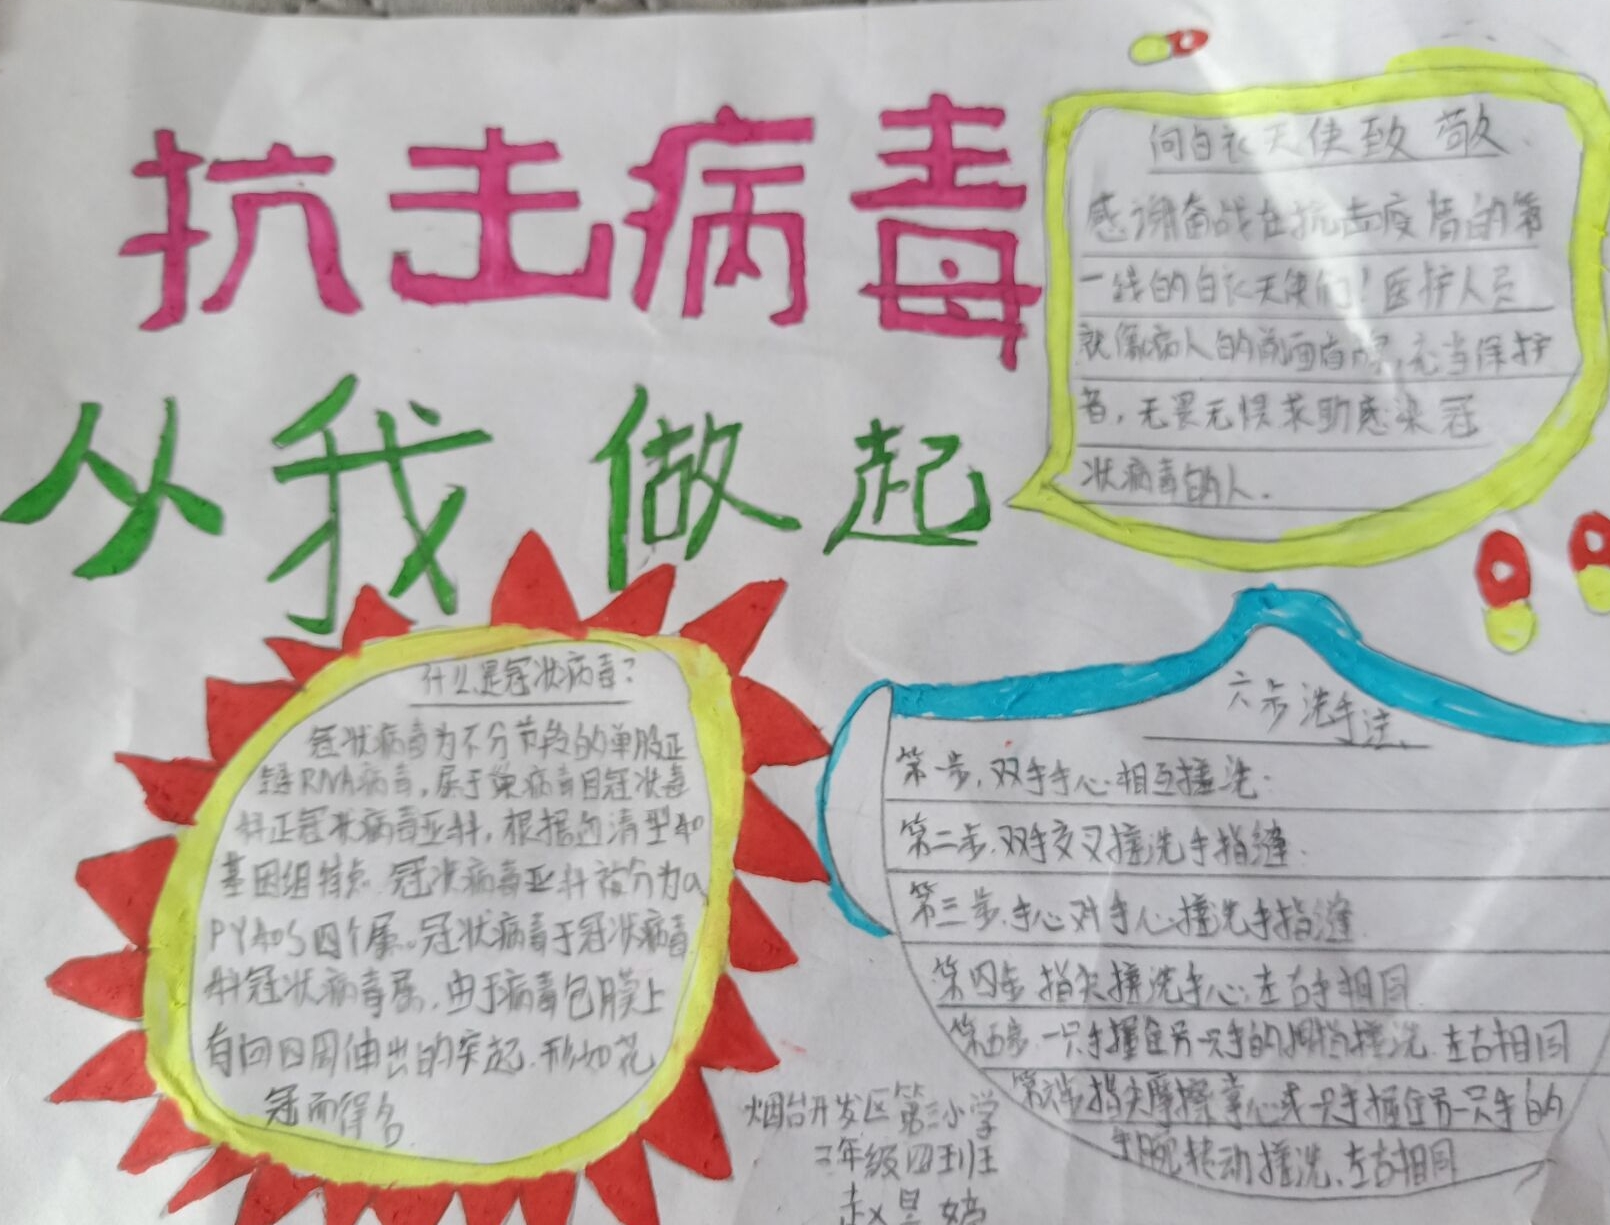 抗击病毒
从我做起
向白衣天使致敬.
感谢奋战在抗击疫情的第
一线的白衣天使们！医护人员
就像病人的前面盾牌,充当保护
者，无畏无惧求助感染冠
状病毒的人.
什么是冠状病毒?
冠状病毒为不分节段的单股正
链RNA病毒，属于巢病毒目冠状毒
科正冠状病毒亚科，根据血清型和
基因组特点 冠状病毒亚科被分为a
PYAOS四个属。冠状病毒于冠状病毒
科冠状病毒属，由于病毒包膜上
有向四周伸出的突起.形如花
冠而得名
六步洗手法
第一步，双手手心相互搓洗.
第二步.双手交叉搓洗手指缝.
第三步.手心对手心搓洗手指缝
第四步 指尖搓洗手心,左右手相同
第五步.一只手握住另一只手的拇指搓洗.左右相同
第六步指尖摩擦掌心或一只手握住另一只手的
手腕转动搓洗、左右相同
烟台开发区第三小学
三年级四班
赵